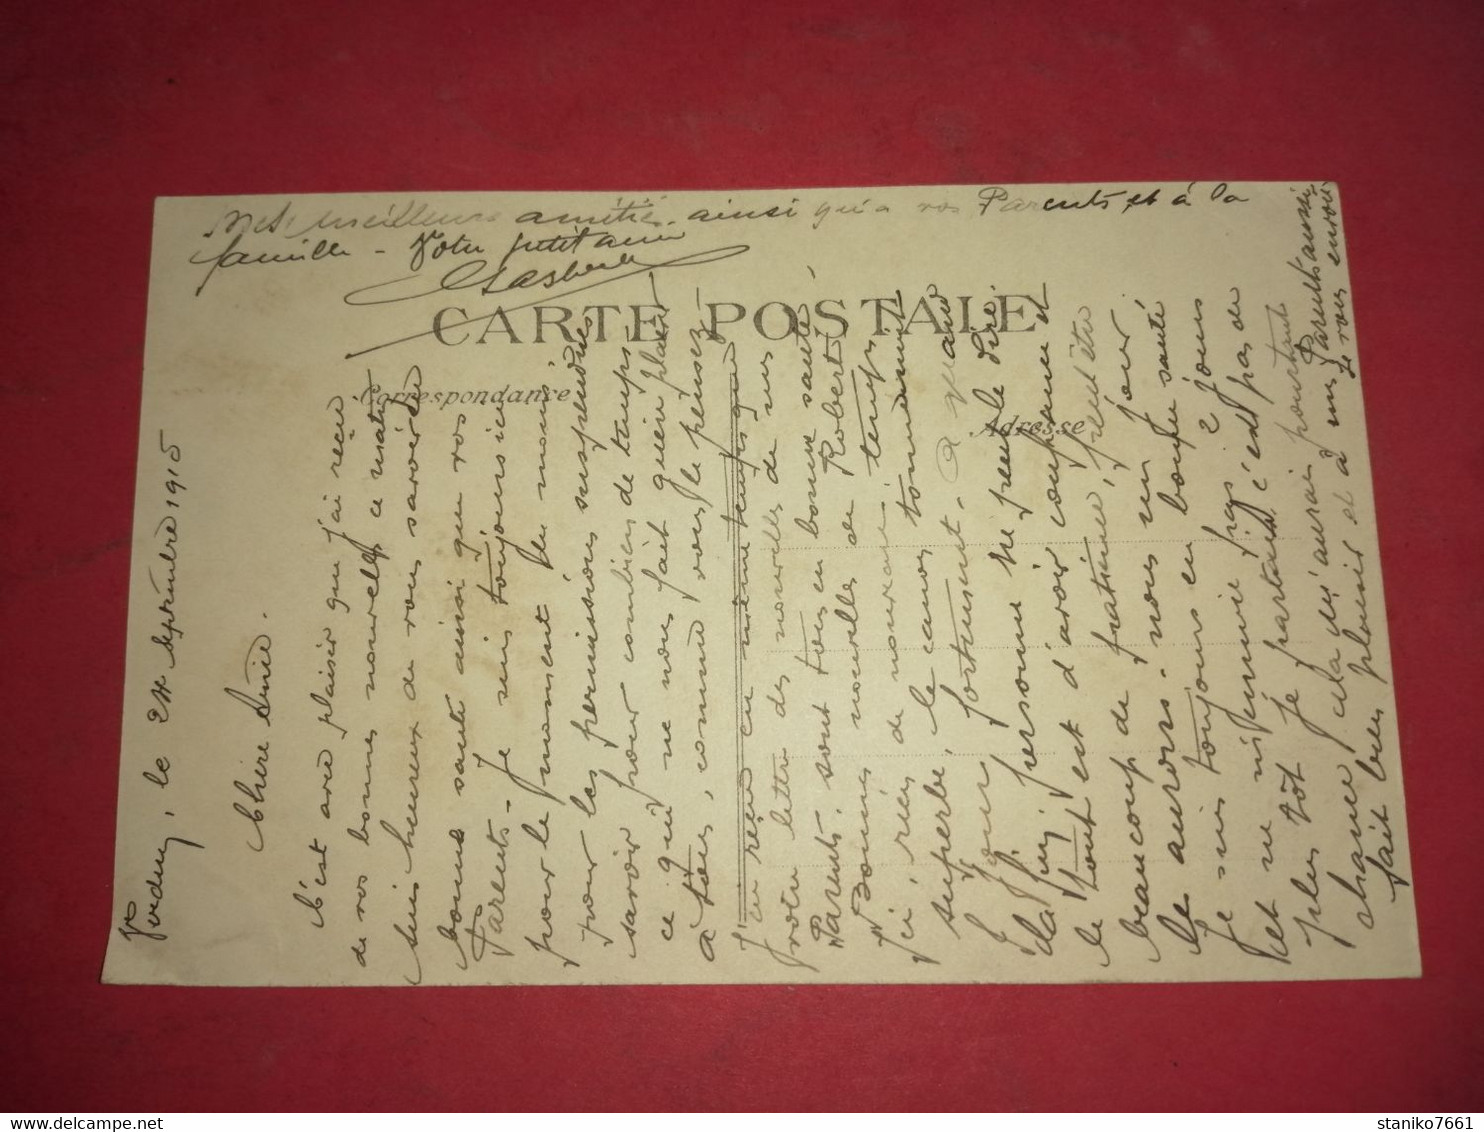 Verdun, le 24 Septembre 1915
Chère Amie.
C'est avec plaisir que j'ai reçu
de vos bonnes nouvelles ce matin
suis heureux de vous savoir en
bonne santé ainsi que vos
Parents. Je suis toujours ici
pour le moment du moins
pour les permissions suspendues
savoir pour combien de temps
ce qui ne nous fait guère plaisir
à tous, comme vous le pensez
J'en reçu en même temps que
votre lettre des nouvelles de mes
Parents. sont tous en bonne santé
Bonnes nouvelles de Robert
ici rien de nouveau, temps
superbe, le canon tonne
fortement. A quand
la fin, personne ne peut le dire
le tout est d'avoir confiance et
beaucoup de patience, peut être
le aurons-nous un jour
je suis toujours en bonne santé
et ne m'ennuie pas, 2 jours
plus tôt je partais, c'est pas de
chance cela m'aurait pourtant
fait bien plaisir et à mes Parents aussi
Je vous envoie
Mes meilleures amitiés ainsi qu'à vos Parents et à la
famille - Votre petit ami
CARTE POSTALE
Correspondance
Adresse
staniko7661